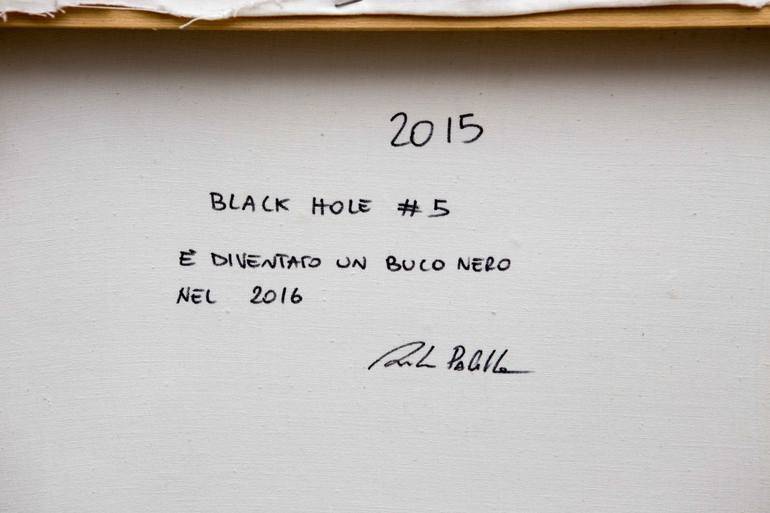 2015
BLACK HOLE #5
È DIVENTATO UN BUCO NERO
NEL 2016